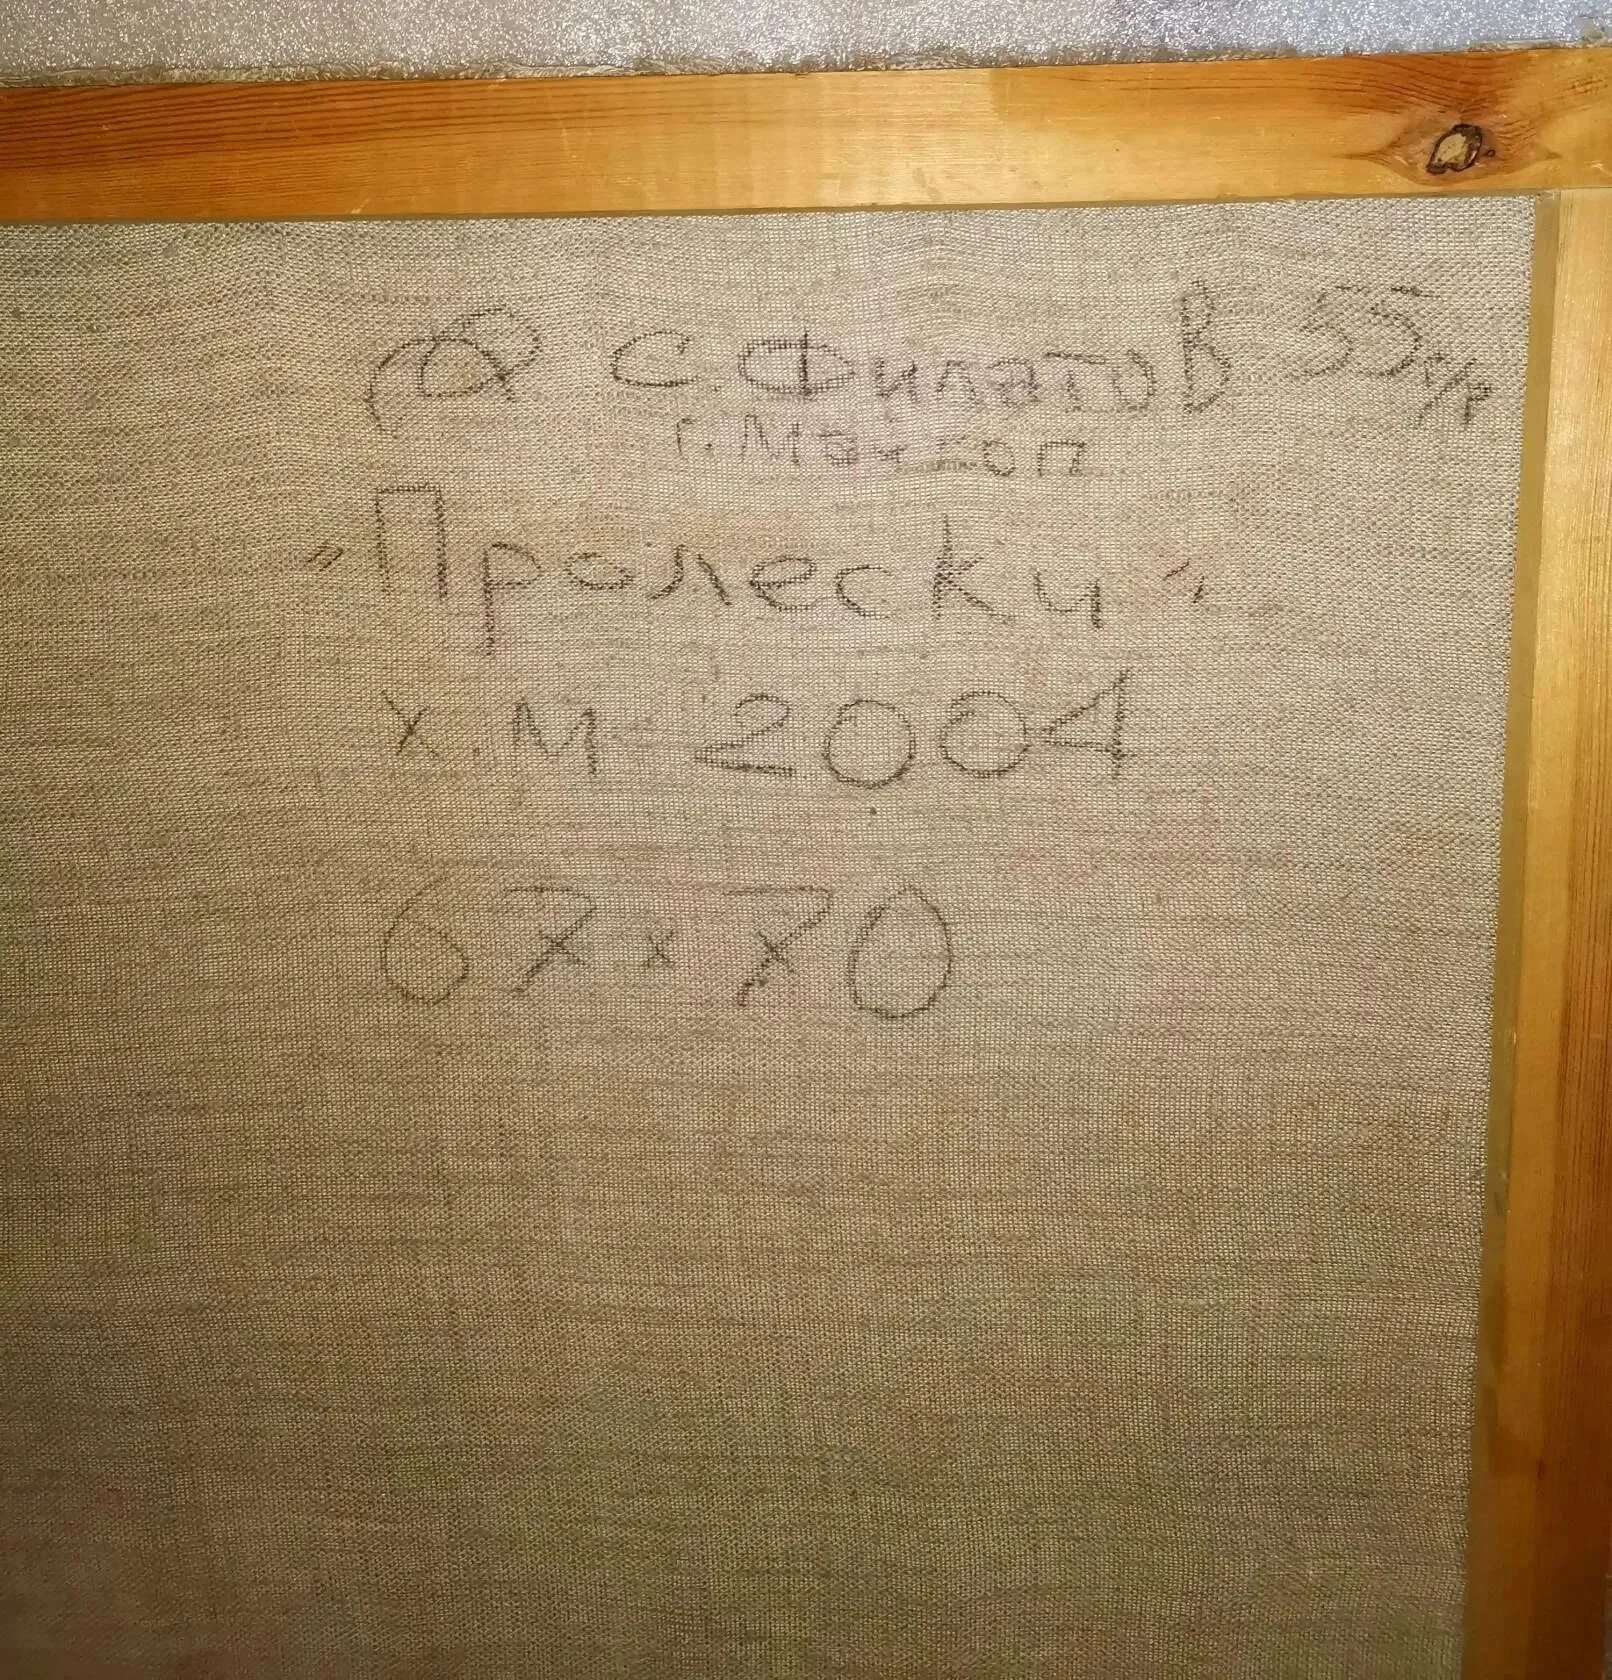 С. Филатов 55 г/р
г. Майкоп
"Пролески"
х.м 2004
67 x 70